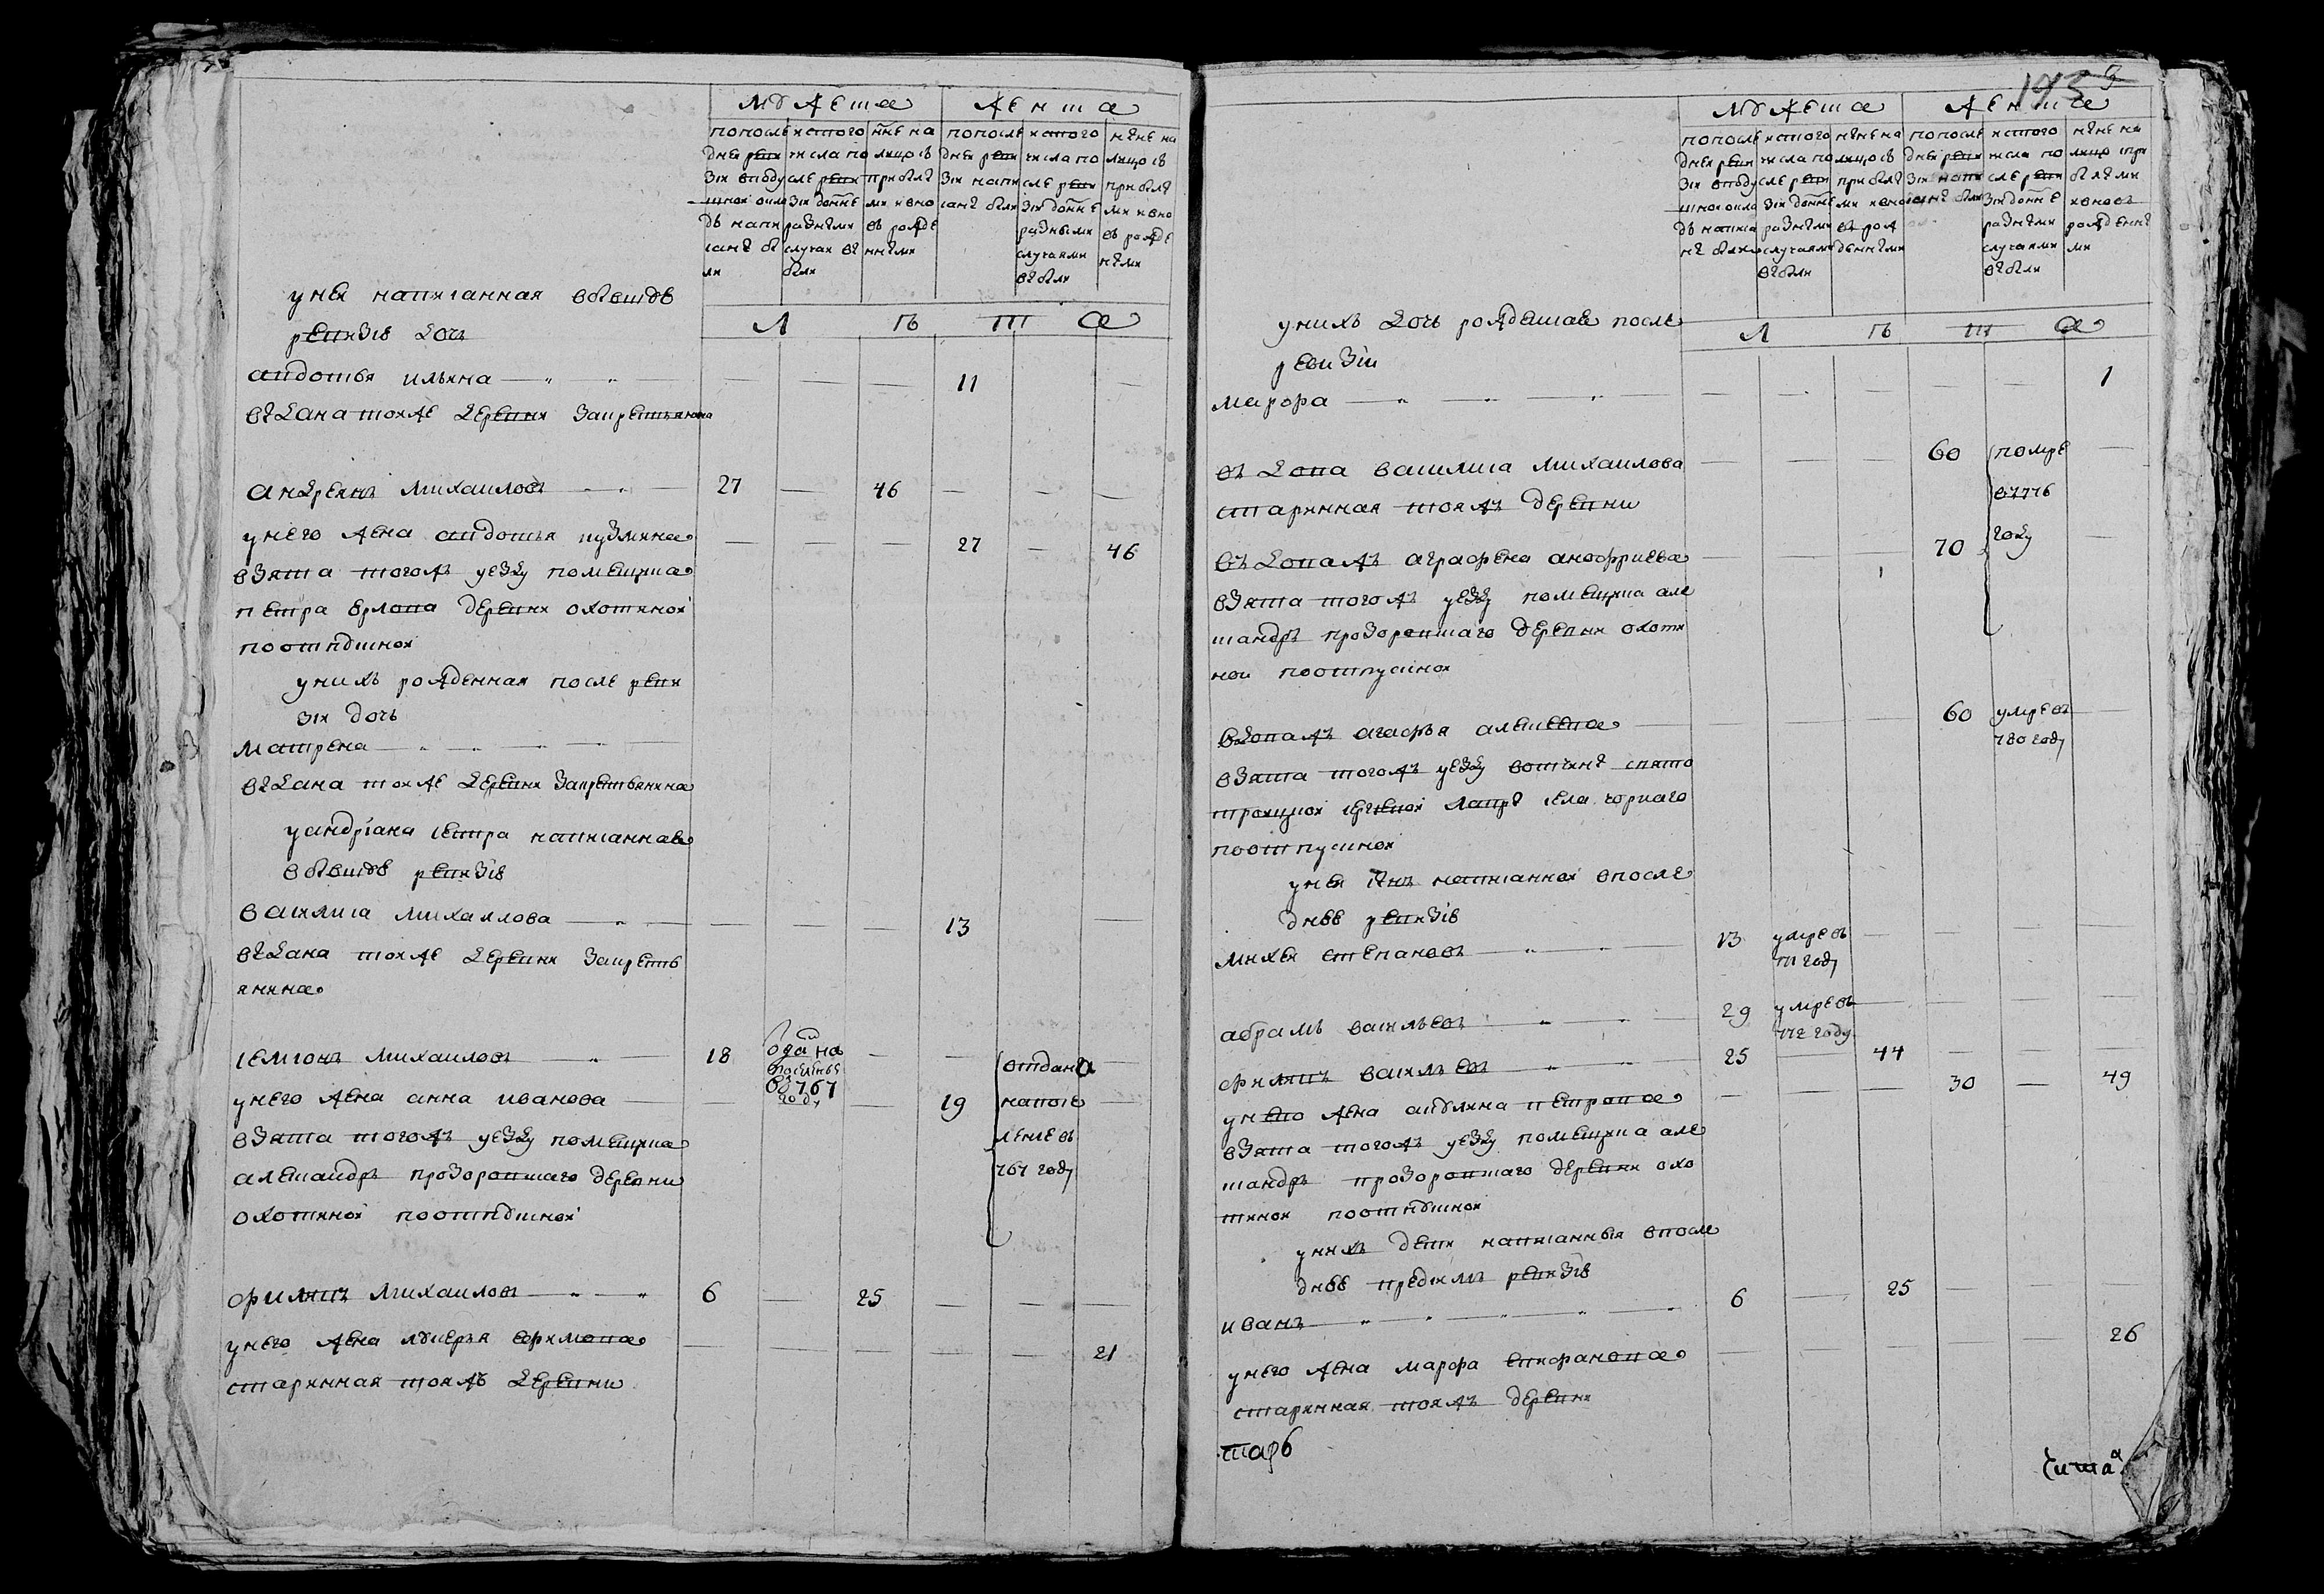 мужеска женска
попосле дней реви зiи вподу шной окла дъ напи саны бы ли
исного числа по сле реви зiи доныне разными случаи вы были
ныне на лицо съ прибылы ми и вно въ рожде нными
попосле дней реви зiи напи саны были
исного числа по сле реви зiи доныне разными случаями выбыли
ныне на лицо съ прибылы ми и вно въ рожде ными
л ѣ т а
у ней написанная в бывшую
ревизiю дочь
авдотья ильина 11
выдана тои же деревни за крестьянина
андреянъ михаиловъ 27 46
у него жена авдотья кузмина 27 46
взята тогожъ уезду помещика
петра ерлова деревни охотиной
по отпускной
у нихъ рожденная после реви
зiи дочь
матрена
выдана тои же деревни за крестьянина
у андрiана сестра написанная
в бывшую ревизiю
василиса михаилова 13
выдана тои же деревни за кресть
янина
семионъ михаиловъ 18 одан на поселенье въ 767 году
у него жена анна иванова 19 отдана на посе ленье въ 767 году
взята тогожъ уезду помещика
александръ прозоровскаго деревни
охотиной по отпускной
филипъ михаиловъ 6 25
у него жена лукерья ефимова 21
старинная тояжъ деревни
193
мужеска женска
попосле дней реви зiи вподу шной окла дъ написа ны были
исного числа по сле реви зiи доныне разными случаями выбыли
ныне на лицо съ прибылы ми и вновь рож денными
попосле дней реви зiи напи саны были
исного числа по сле реви зiи доныне разными случаями выбыли
ныне на лицо при былыми и вновъ рожденны ми
л ѣ т а
у нихъ дочь рождешая после
ревизiи
марфа 1
въдова василиса михаилова 60 помере в 776 году
старинная тояжъ деревни
въдоважъ аграфена анофриева 70
взята тогожъ уезду помещика але
ксандръ прозоровскаго деревни охоти
нои по отпускной
вдоважъ агафья алексеева 60 умре въ 780 году
взята тогожъ уезду вотчины свято
троицкой сергиевой лавры села чорнаго
по отпускной
у ней сынъ написанной в после
днюю ревизiю
михей степановъ 13 умре въ 771 году
абрамъ васильевъ 29 умре въ 772 году
филипъ васильевъ 25 44
у него жена акулина петрова 30 49
взята тогожъ уезду помещика але
ксандръ прозоровскаго деревни охо
тиной по отпускной
у нихъ дети написанныя в после
днюю предъ симъ ревизiю
иванъ 6 25
у него жена марфа епифанова 26
старинная тояжъ деревни